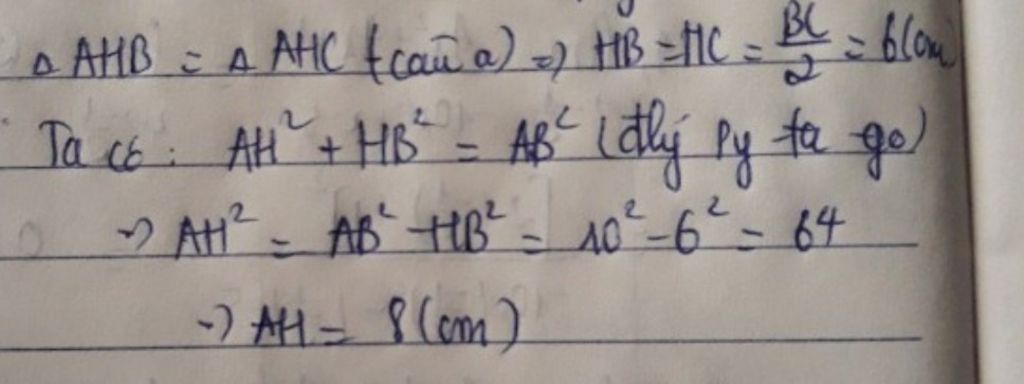 Δ AHB = Δ AHC (câu a) => HB = HC = BC/2 = 6(cm)
Ta có : AH² + HB² = AB² (đlý Py ta go)
=> AH² = AB² - HB² = 10² - 6² = 64
=> AH = 8 (cm)